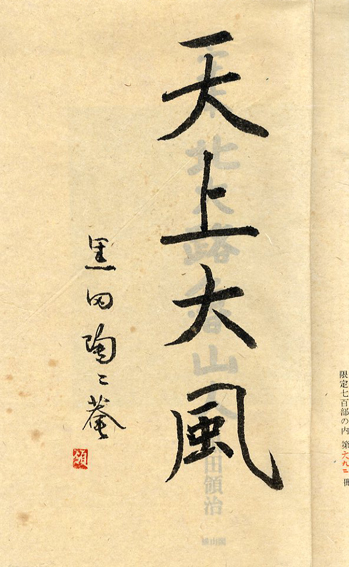 限定七百部の内 第六九二冊
天上大風
黒田陶々菴
領
北大路魯山人
田領治